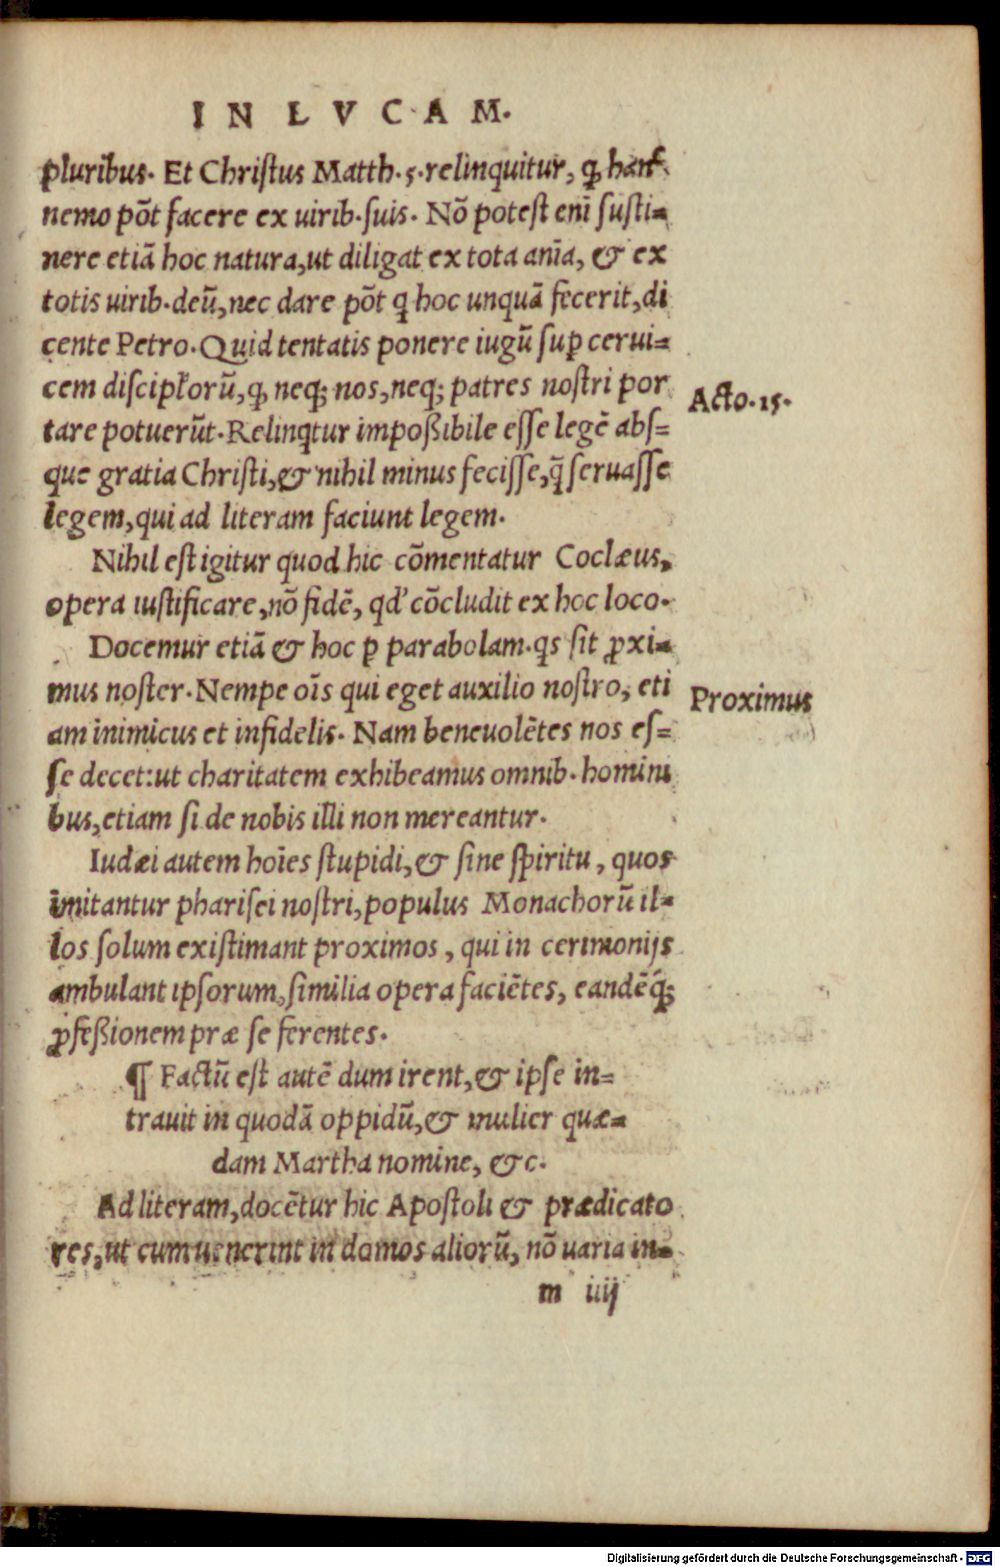 IN LVCAM.
pluribus. Et Christus Matth. 5. relinquitur, ꝙ hanc
nemo põt facere ex uirib. suis. Nõ potest enĩ susti=
nere etiã hoc natura, ut diligat ex tota anĩa, & ex
totis uirib. deũ, nec dare põt ꝙ hoc unquã fecerit, di
cente Petro. Quid tentatis ponere iugũ suꝑ cerui=
cem discipl'orũ, ꝙ neq; nos, neq; patres nostri por
tare potuerũt. Relinqtur impoßibile esse legẽ abs=
que gratia Christi, & nihil minus fecisse, q̃ seruasse
legem, qui ad literam faciunt legem.
Nihil est igitur quod hic cõmentatur Coclæus,
opera iustificare, nõ fidẽ, qd' cõcludit ex hoc loco.
Docemur etiã & hoc ꝑ parabolam. qs sit ꝓxi=
mus noster. Nempe oĩs qui eget auxilio nostro, eti
am inimicus et infidelis. Nam beneuolẽtes nos es=
se decet: ut charitatem exhibeamus omnib. homini
bus, etiam si de nobis illi non mereantur.
Iudæi autem hoĩes stupidi, & sine spiritu, quos
imitantur pharisei nostri, populus Monachorũ il=
los solum existimant proximos, qui in cerimonijs
ambulant ipsorum, similia opera faciẽtes, eandẽq́;
ꝓfeßionem præ se ferentes.
¶ Factũ est autẽ dum irent, & ipse in=
trauit in quodã oppidũ, & mulier quæ=
dam Martha nomine, &c.
Ad literam, docẽtur hic Apostoli & prædicato
res, ut cum uenerint in domos aliorũ, nõ uaria in=
m iiij
Acto. 15.
Proximus
Digitalisierung gefördert durch die Deutsche Forschungsgemeinschaft - DFG